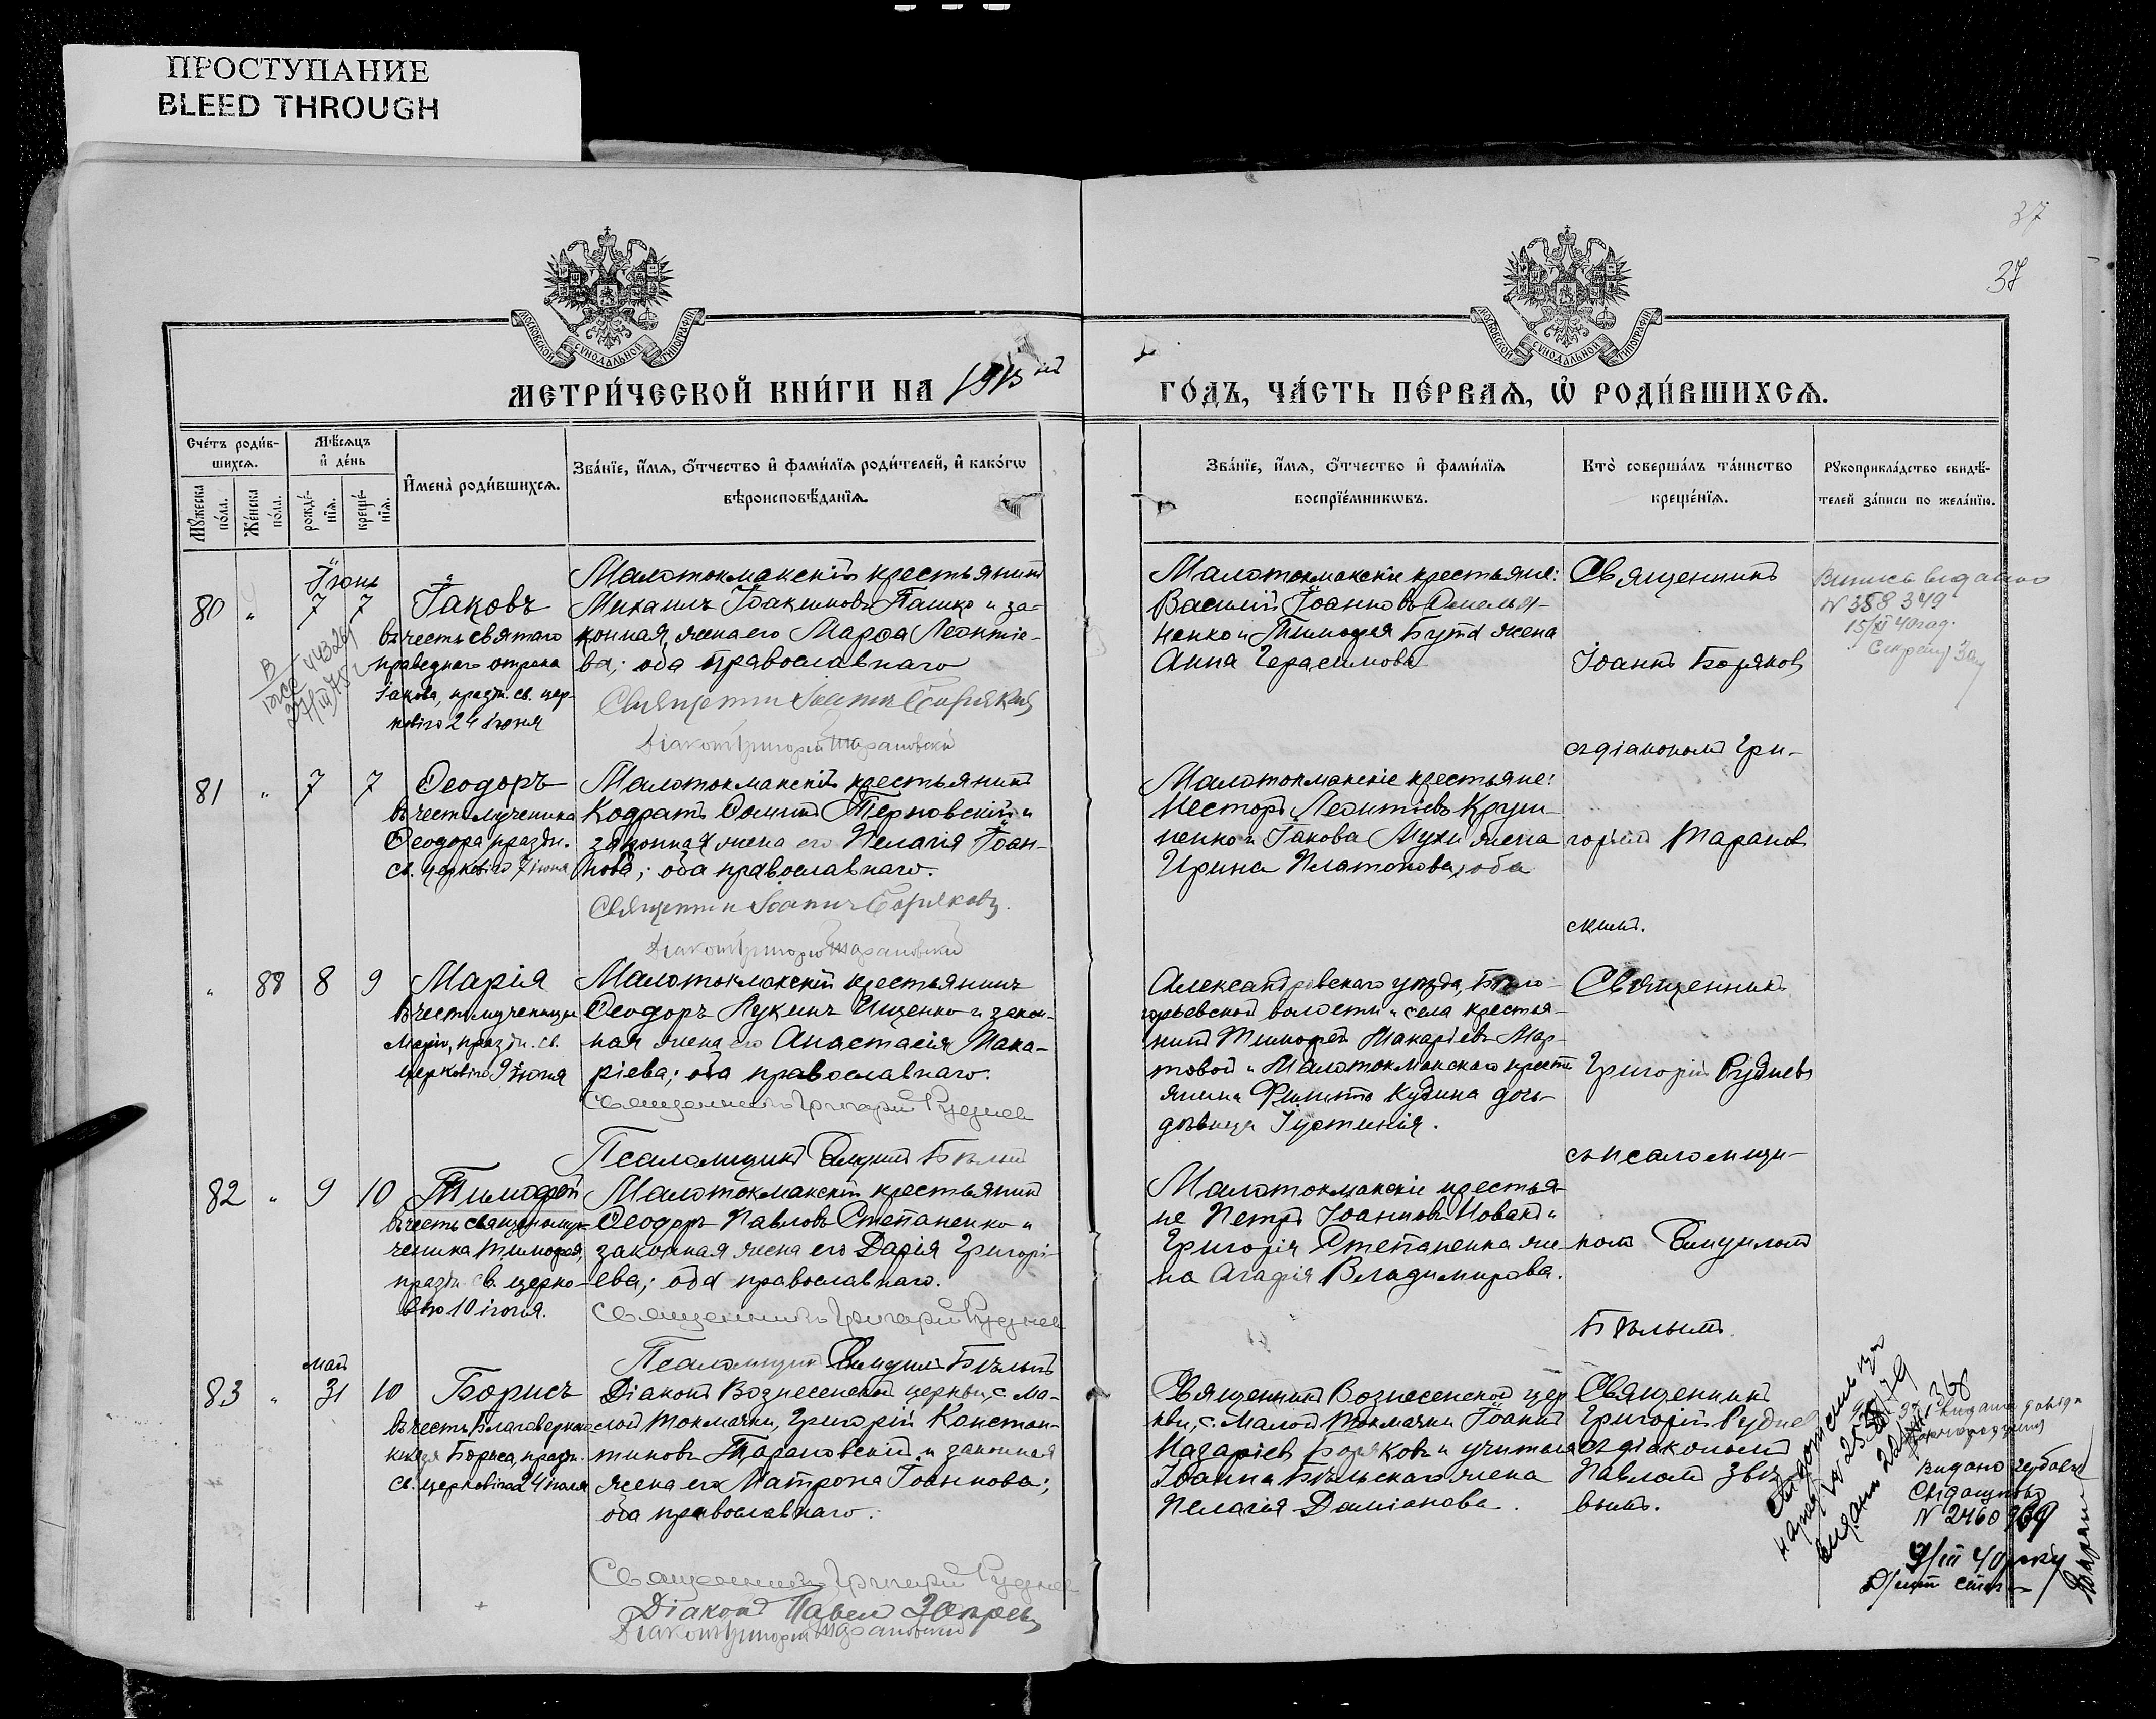 ПРОСТУПАНИЕ
BLEED THROUGH
37
37
МОСКОВСКОЙ СУНОДАЛЬНОЙ ТИПОГРАФІИ
МОСКОВСКОЙ СУНОДАЛЬНОЙ ТИПОГРАФІИ
МЕТРИ́ЧЕСКОЙ КНИ́ГИ НА 1915 ый
ГО́ДЪ, ЧА́СТЬ ПЕ́РВАѦ, Ѡ҆ РОДИ́ВШИХСѦ.
Сче́тъ роди́в-
шихсѧ.
Мꙋжеска по́ла.
Же́нска по́ла.
Мѣ́сѧцъ
и҆ де́нь
рожде́-
нїѧ.
креще́-
нїѧ.
И҆мена̀ роди́вшихсѧ.
Зва́нїе, и҆́мѧ, ѻ҆́тчество и҆ фами́лїѧ роди́телей, и҆ како́гѡ
вѣроисповѣ́данїѧ.
Зва́нїе, и҆́мѧ, ѻ҆́тчество и҆ фами́лїѧ
воспрїе́мникѡвъ.
Кто̀ соверша́лъ та́инство
креще́нїѧ.
Рꙋкоприкла́дство свидѣ́-
телей за́писи по жела́нїю.
Іюнь
80 " 7 7 Іаковъ
въ честь святаго
праведнаго отрока
Іакова, праздн. св. цер-
ковію 24 іюня
Малотокмакскій крестьянинъ
Михаилъ Іоакимовъ Пашко и за-
конная жена его Марѳа Леонтіе-
ва; оба православнаго
Священник Іоаннъ Боряковъ
Діаконъ Григорій Тарановскій
Малотокмакскіе крестьяне:
Василій Іоанновъ Омелья-
ненко и Тимоѳея Бута жена
Анна Герасимова
Священникъ
Іоаннъ Боряковъ
съ діакономъ Гри-
горіемъ Таранов
скимъ.
N 358349
15/XI 40 год.
81 " 7 7 Ѳеодоръ
въ честь мученика
Ѳеодора праздн.
св. церковію 7 іюня
Малотокмакскій крестьянинъ
Кодратъ Ѳоминъ Терновскій и
законная жена его Пелагія Іоан-
нова; оба православнаго.
Священник Іоаннъ Боряковъ.
Діаконъ Григорій Тарановскій
Малотокмакскіе крестьяне:
Несторъ Леонтіевъ Круш-
ненко и Іакова Мухи жена
Ирина Платонова, оба
" 88 8 9 Марія
въ честь мученицы
Маріи, праздн. св.
церковію 9 іюня
Малотокмакскій крестьянинъ
Ѳеодоръ Лукинъ Ищенко и закон-
ная жена его Анастасія Мака-
ріева; оба православнаго.
Священникъ Григорій Руднев
Псаломщикъ Бѣлый
Александровскаго уѣзда, Бѣло-
горьевской волости и села крестья-
нинъ Тимоѳей Макаріевъ Мар-
товой и Малотокмакскаго кресть
янина Филиппа Кудина дочь-
дѣвица Іустинія.
Священникъ
Григорій Рудневъ
съ псаломщи-
комъ
Бѣлымъ.
82 " 9 10 Тимоѳей
въ честь священному-
ченика Тимоѳея,
праздн. св. церко-
вію 10 іюня.
Малотокмакскій крестьянинъ
Ѳеодоръ Павловъ Степаненко и
законная жена его Дарія Григорі-
ева; оба православнаго.
Священникъ Григорій Руднев
Псаломщикъ Бѣлый
Малотокмакскіе крестья-
не Петръ Іоанновъ Новакъ и
Григорія Степаненка же-
на Агафія Владимирова.
май
83 " 31 10 Борисъ
въ честь Благовѣрнаго
князя Бориса, праздн.
св. церковію 24 іюля
Діаконъ Вознесенской церкви, с. Ма-
лой Токмачки, Григорій Констан-
тиновъ Тарановскій и законная
жена его Матрона Іоаннова;
оба православнаго.
Священникъ Григорій Руднев
Діаконъ Павелъ
Діаконъ Григорій Тарановскій
Священникъ Вознесенской цер
кви, с. Малой Токмачки Іоаннъ
Назаріевъ Боряковъ и учителя
Іоанна Бѣльскаго жена
Пелагія Даміанова.
Священникъ
Григорій Руднев
съ діакономъ
Павломъ
вымъ.
видано
N 2460
9/III 40 року